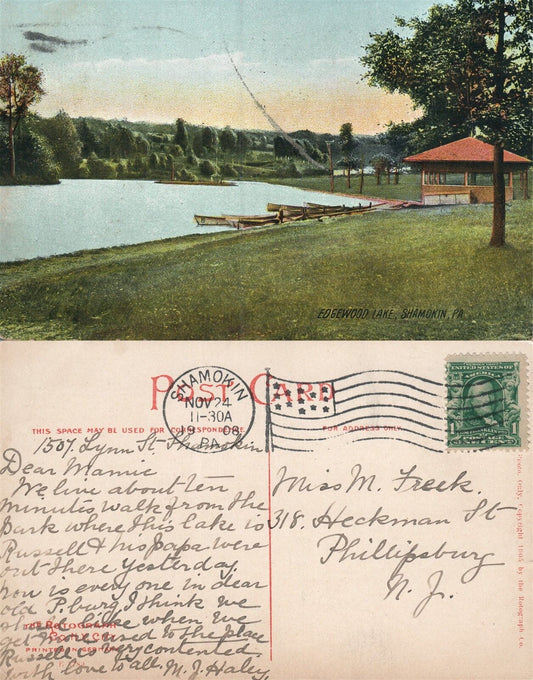 EDGEWOOD LAKE, SHAMOKIN, PA.
POST CARD
SHAMOKIN
NOV 24
11-30A
1908
PA.
UNITED STATES OF AMERICA
1
THIS SPACE MAY BE USED FOR CORRESPONDENCE
FOR ADDRESS ONLY.
1507 Lynn St Shamokin
Dear Mamie
We live about ten
minutes walk from the
Park where this lake is
Russell & his papa were
out there yesterday.
how is every one in dear
old P.burg, I think we
like when we
get more used to the place
Russell is very contented
with love to all. M. J. Haley.
Miss M. Freek.
318. Heckman St
Phillipsburg
N. J.
THE ROTOGRAPH
PRINTED IN
Copyright 1905 by the Rotograph Co.